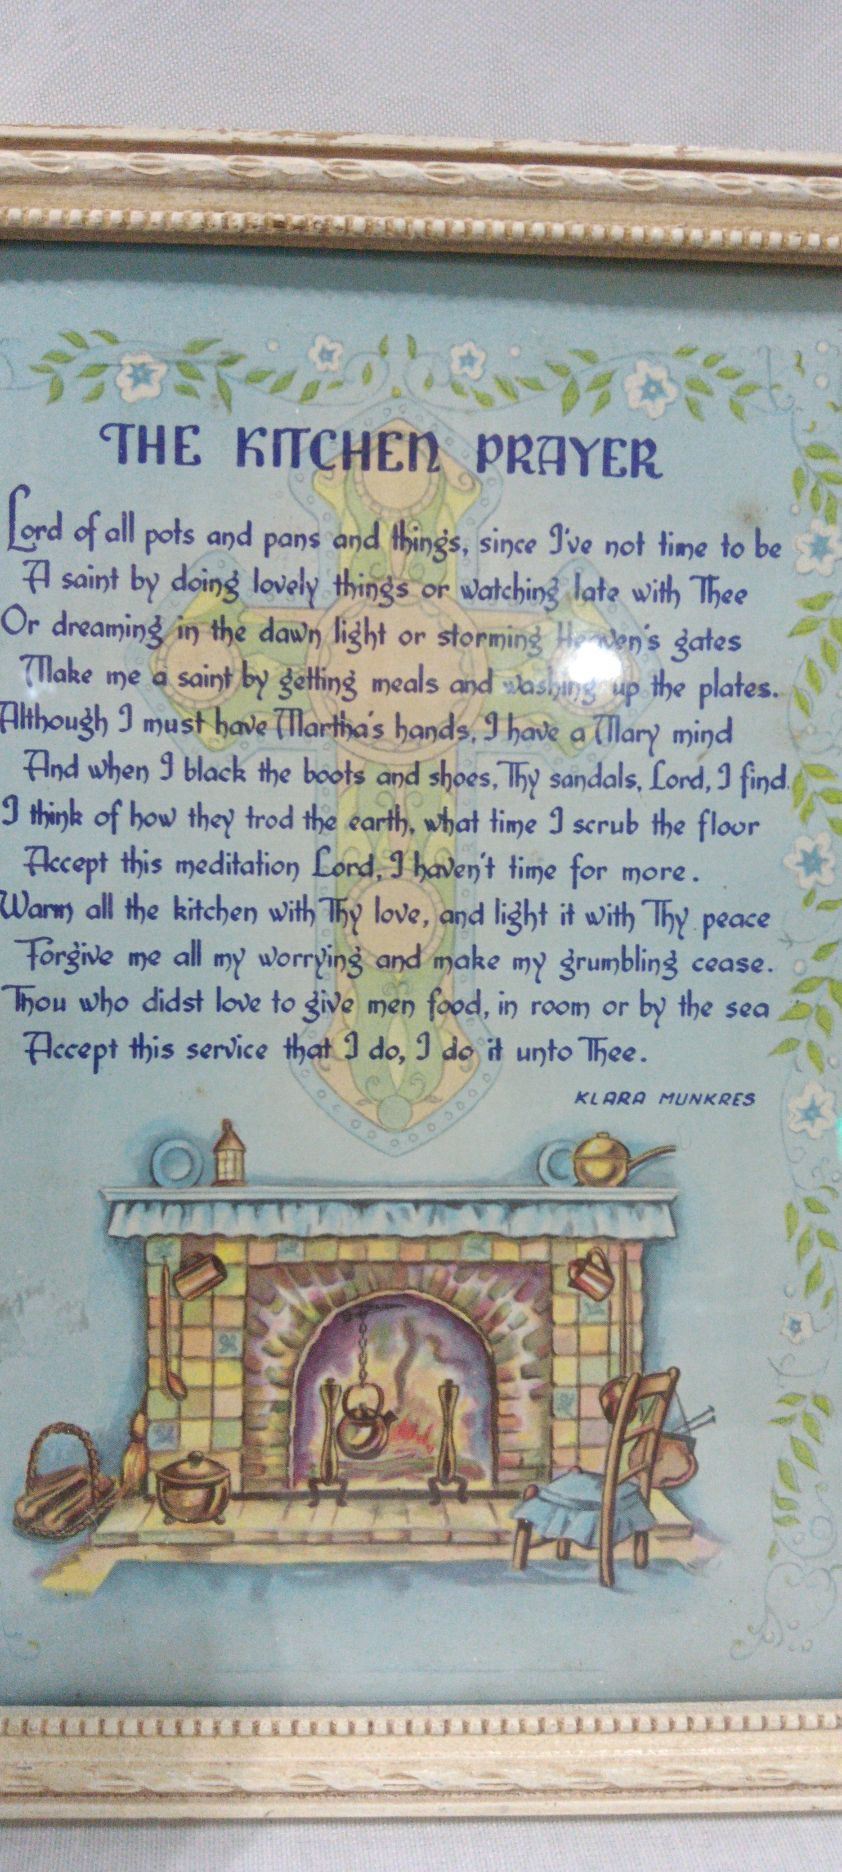 THE KITCHEN PRAYER
Lord of all pots and pans and things, since I've not time to be
A saint by doing lovely things or watching late with Thee
Or dreaming in the dawn light or storming Heaven's gates
Make me a saint by getting meals and washing up the plates.
Although I must have Martha's hands, I have a Mary mind
And when I black the boots and shoes, Thy sandals, Lord, I find.
I think of how they trod the earth, what time I scrub the floor
Accept this meditation Lord, I haven't time for more.
Warm all the kitchen with Thy love, and light it with Thy peace
Forgive me all my worrying and make my grumbling cease.
Thou who didst love to give men food, in room or by the sea
Accept this service that I do, I do it unto Thee.
KLARA MUNKRES